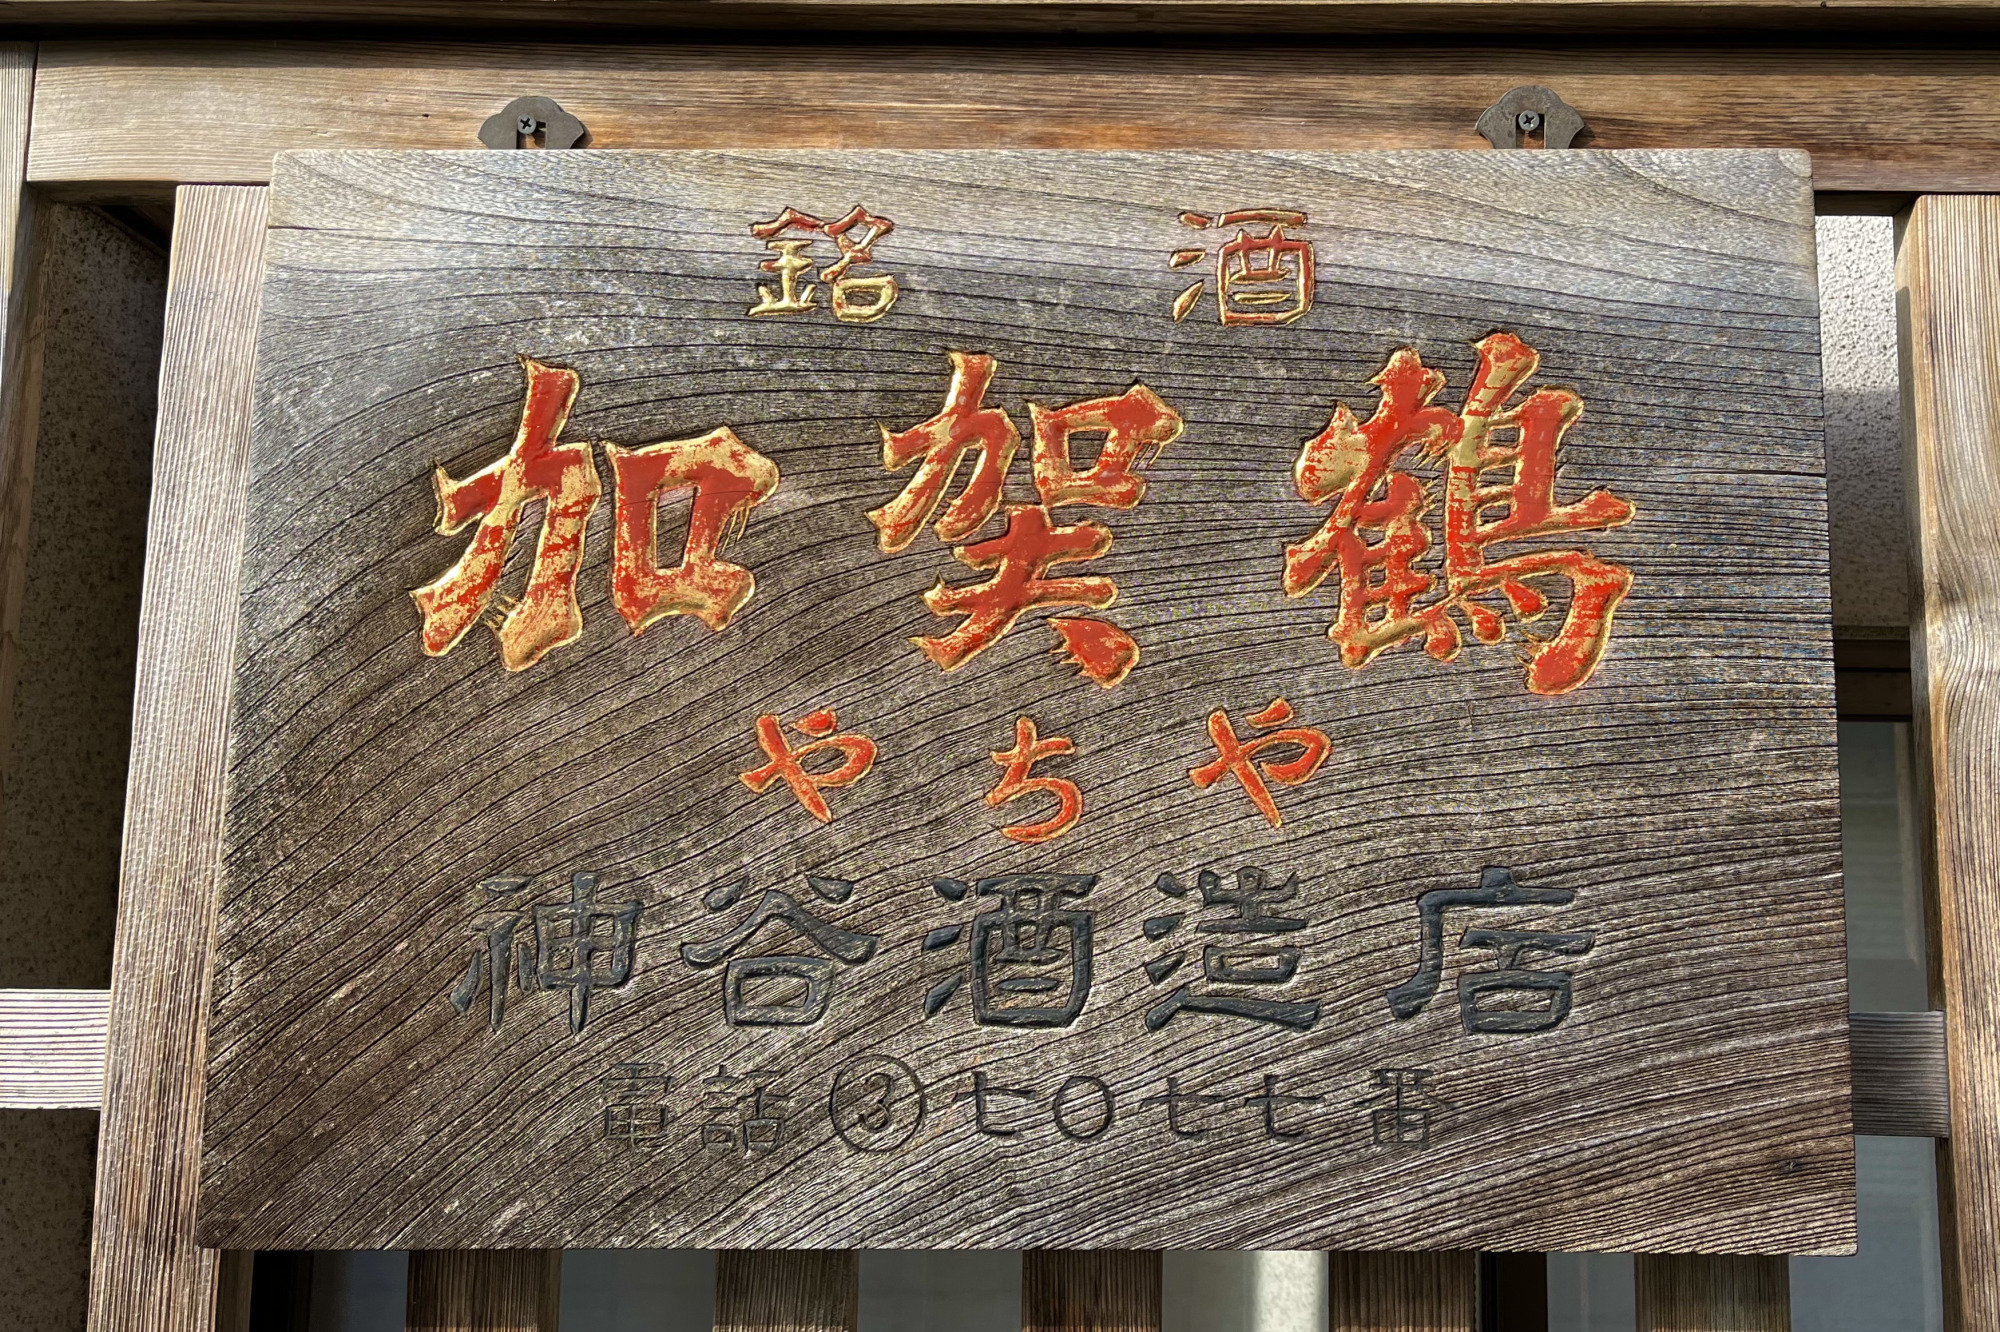 銘酒
加賀鶴
やちや
神谷酒造店
電話③七〇七七番